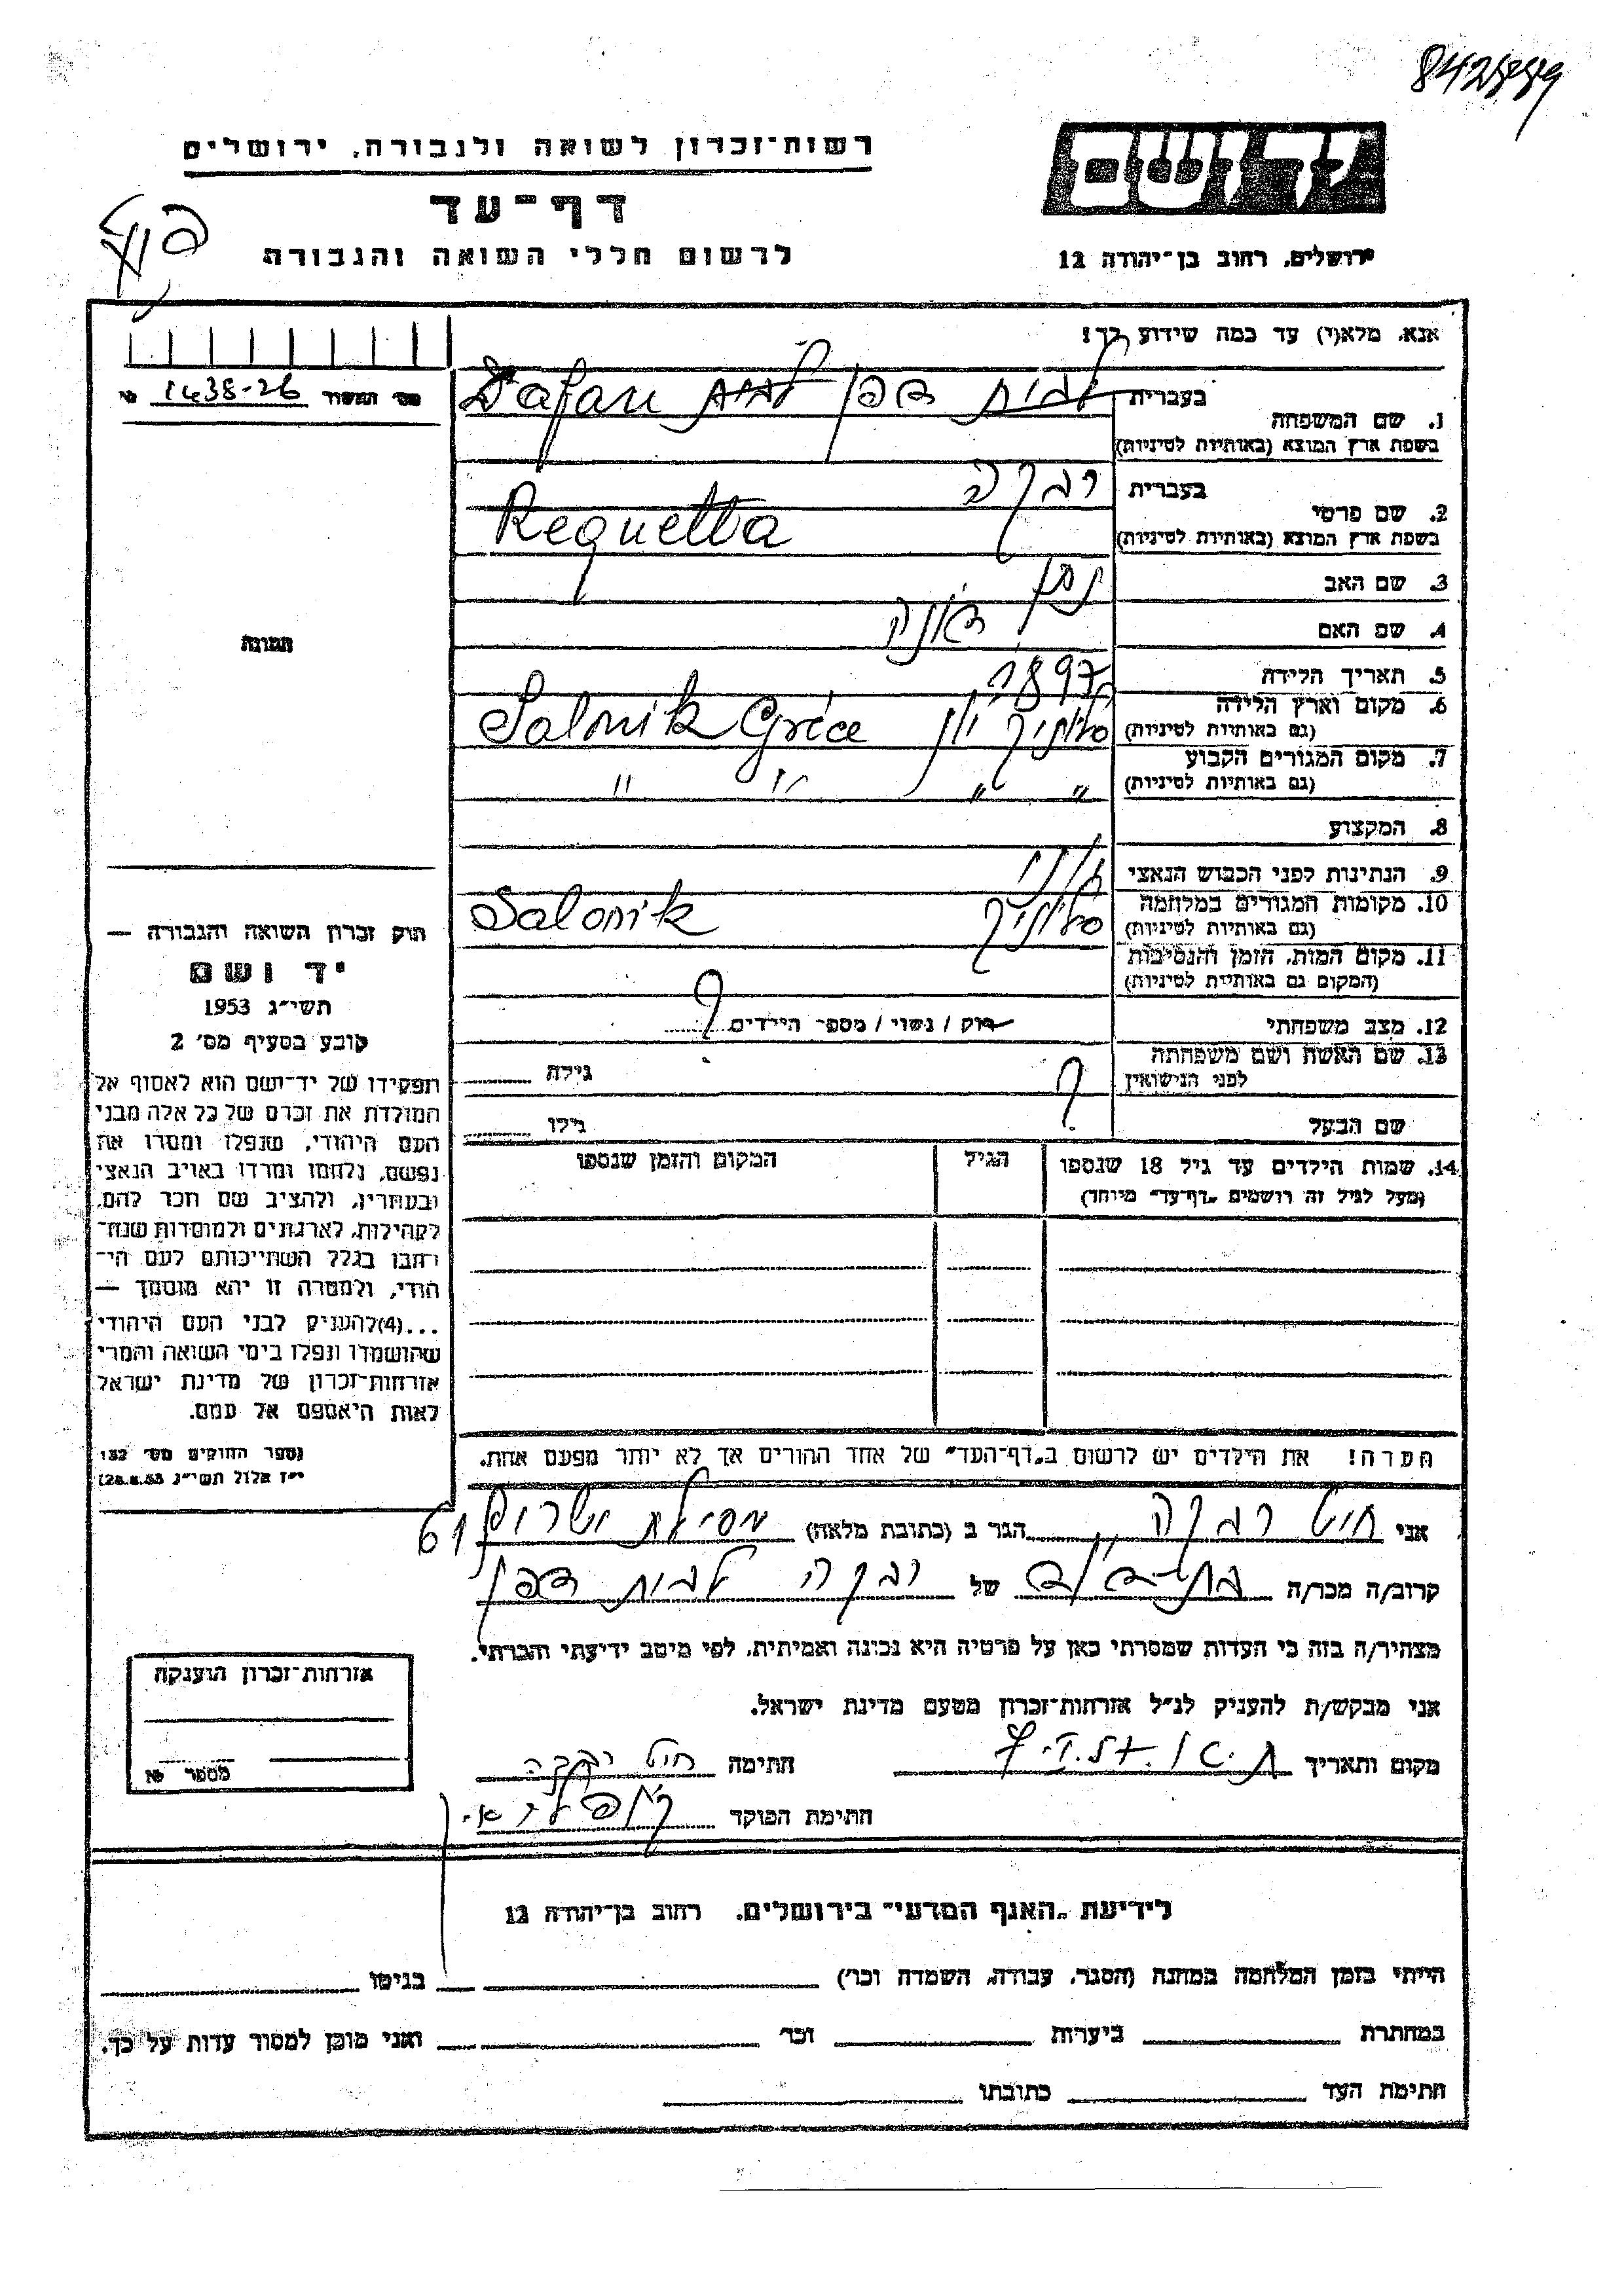 רשות־זכרון לשואה ולגבורה, ירושלים
דף־עד
לרשום חללי השואה והגבורה
ידושם
ירושלים, רחוב בן־יהודה 12
אנא, מלא(י) עד כמה שידוע לך!
מס' המשור № 1438-26
1. שם המשפחה בעברית לבית דפן Dafan
בשפת ארץ המוצא (באותיות לטיניות)
2. שם פרטי בעברית רבקה
בשפת ארץ המוצא (באותיות לטיניות) Requetta
3. שם האב נתן
4. שם האם דונה
5. תאריך הלידה 1897
6. מקום וארץ הלידה סלוניק יון Salonik Gréce
(גם באותיות לטיניות)
7. מקום המגורים הקבוע " " " "
(גם באותיות לטיניות)
8. המקצוע
9. הנתינות לפני הכבוש הנאצי יוני
10. מקומות המגורים במלחמה סלוניק Salonik
(גם באותיות לטיניות)
11. מקום המות, הזמן והנסיבות
(המקום גם באותיות לטיניות)
12. מצב משפחתי רוק / נשוי / מספר הילדים ?
13. שם האשה ושם משפחתה ? גילה
לפני הנישואין
שם הבעל גילו
14. שמות הילדים עד גיל 18 שנספו הגיל המקום והזמן שנספו
(מעל לגיל זה רושמים „דף־עד" מיוחד)
הערה! את הילדים יש לרשום ב„דף־העד" של אחד ההורים אך לא יותר מפעם אחת.
תמונה
חוק זכרון השואה והגבורה —
יד ושם
תשי״ג 1953
קובע בסעיף מס' 2
תפקידו של יד־ושם הוא לאסוף אל
המולדת את זכרם של כל אלה מבני
העם היהודי, שנפלו ומסרו את
נפשם, נלחמו ומרדו באויב הנאצי
ובעוזריו, ולהציב שם וזכר להם,
לקהילות, לארגונים ולמוסדות שנח־
רבו בגלל השתייכותם לעם הי־
הודי, ולמטרה זו יהא מוסמך —
...(4)להעניק לבני העם היהודי
שהושמדו ונפלו בימי השואה והמרי
אזרחות־זכרון של מדינת ישראל
לאות היאספם אל עמם.
(ספר החוקים מס' 132
י״ז אלול תשי״ג 28.8.53)
אני רבקה הגר ב (כתובת מלאה) מסילת ישרים 61
קרוב/ה מכר/ה של רבקה לבית דפן
מצהיר/ה בזה כי העדות שמסרתי כאן על פרטיה היא נכונה ואמיתית, לפי מיטב ידיעתי והכרתי.
אני מבקש/ת להעניק לנ״ל אזרחות־זכרון מטעם מדינת ישראל.
מקום ותאריך חתימה רבקה
חתימת הפוקד
אזרחות־זכרון הוענקה
מספר №
לידיעת „האגף המדעי" בירושלים, רחוב בן־יהודה 12
הייתי בזמן המלחמה במחנה (הסגר, עבודה, השמדה וכו') בגיטו
במחתרת ביערות וכו' ואני מוכן למסור עדות על כך.
חתימת העד כתובתו